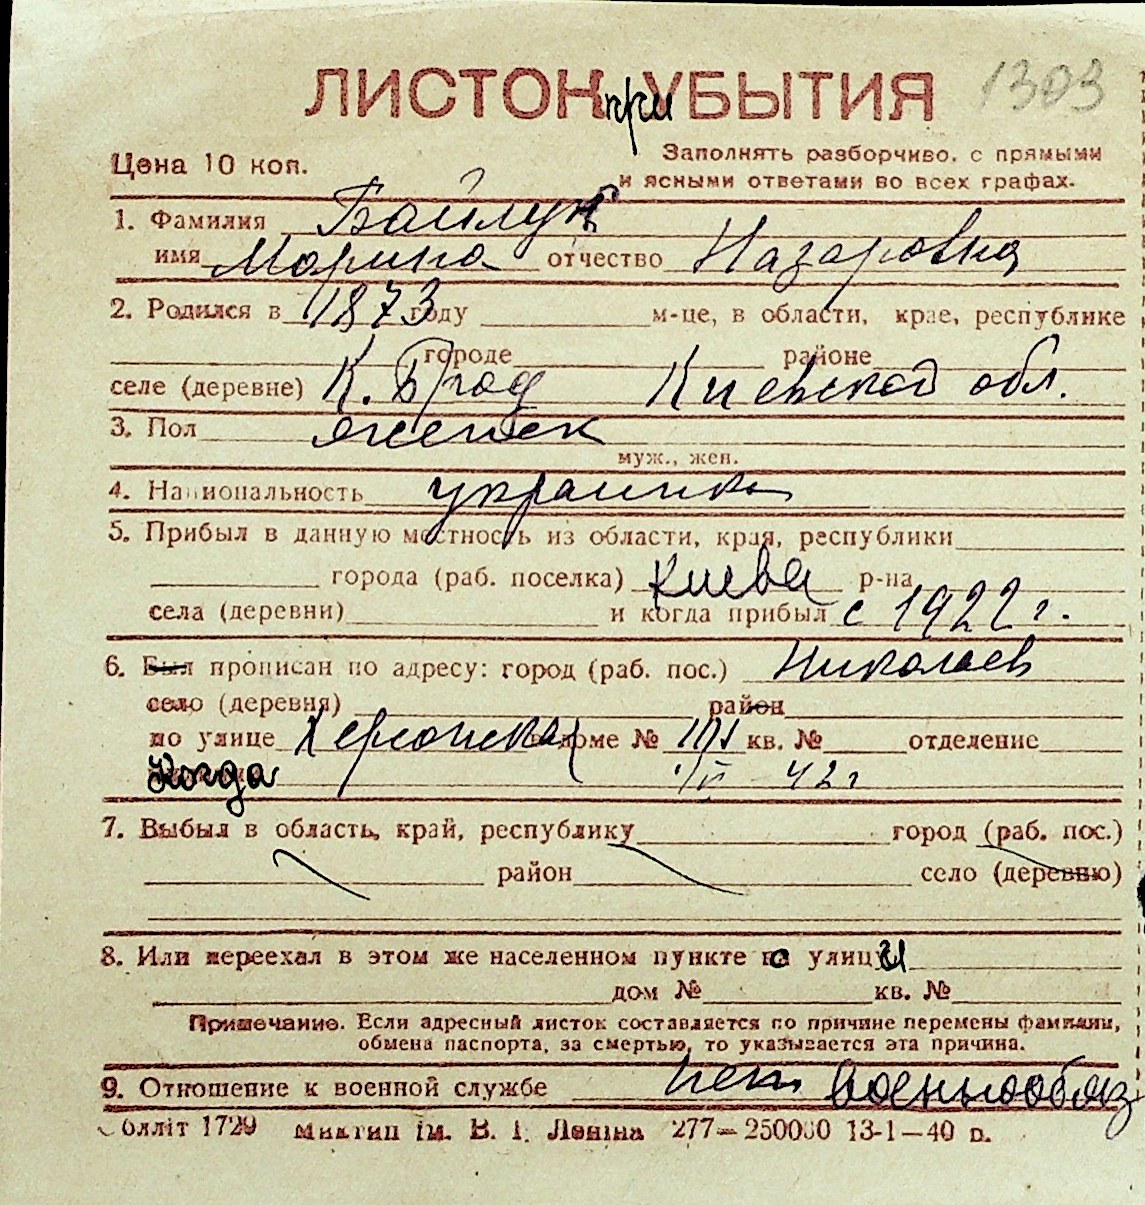 ЛИСТОК при УБЫТИЯ 1303
Цена 10 коп.
Заполнять разборчиво, с прямыми
и ясными ответами во всех графах.
1. Фамилия Байлук
имя Марина отчество Назаровна
2. Родился в 1873 году м-це, в области, крае, республике
городе районе
селе (деревне) К. Брод Киевской обл.
3. Пол женск
муж., жен.
4. Национальность украинка
5. Прибыл в данную местность из области, края, республики
города (раб. поселка) Киева р-на
села (деревни) и когда прибыл с 1922 г.
6. Был прописан по адресу: город (раб. пос.) Николаев
село (деревня) район
по улице Херсонская доме № 191 кв. № отделение
Когда 42 г
7. Выбыл в область, край, республику город (раб. пос.)
район село (деревню)
8. Или переехал в этом же населенном пункте с улицы
дом № кв. №
Примечание. Если адресный листок составляется по причине перемены фамилии,
обмена паспорта, за смертью, то указывается эта причина.
9. Отношение к военной службе нет военнообяз
Обліт 1729 Миктип ім. В. І. Леніна 277—250000 13-1—40 р.